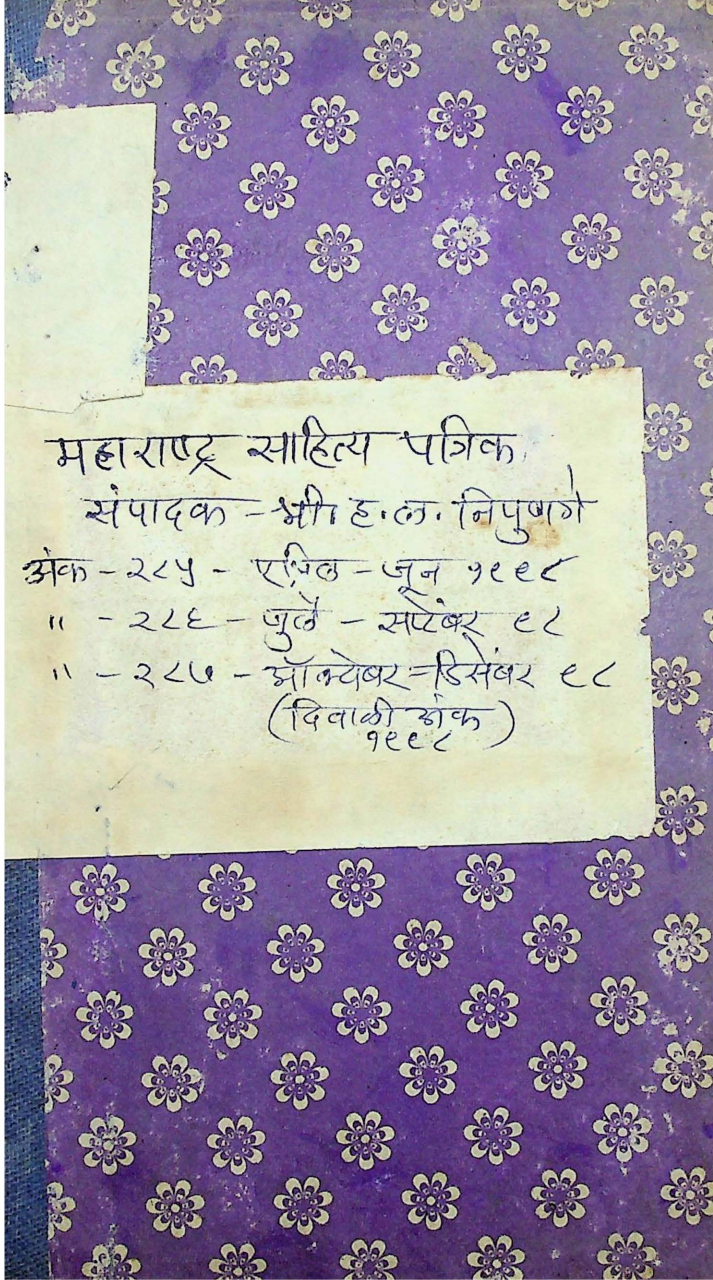 महाराष्ट्र साहित्य पत्रिक
संपादक - श्री. ह. ल. निपुणगे
अंक - २८५ - एप्रिल - जून १९९८
" - २८६ - जुलै - सप्टेंबर ९८
" - २८७ - ऑक्टोबर - डिसेंबर ९८
(दिवाळी अंक)
१९९८